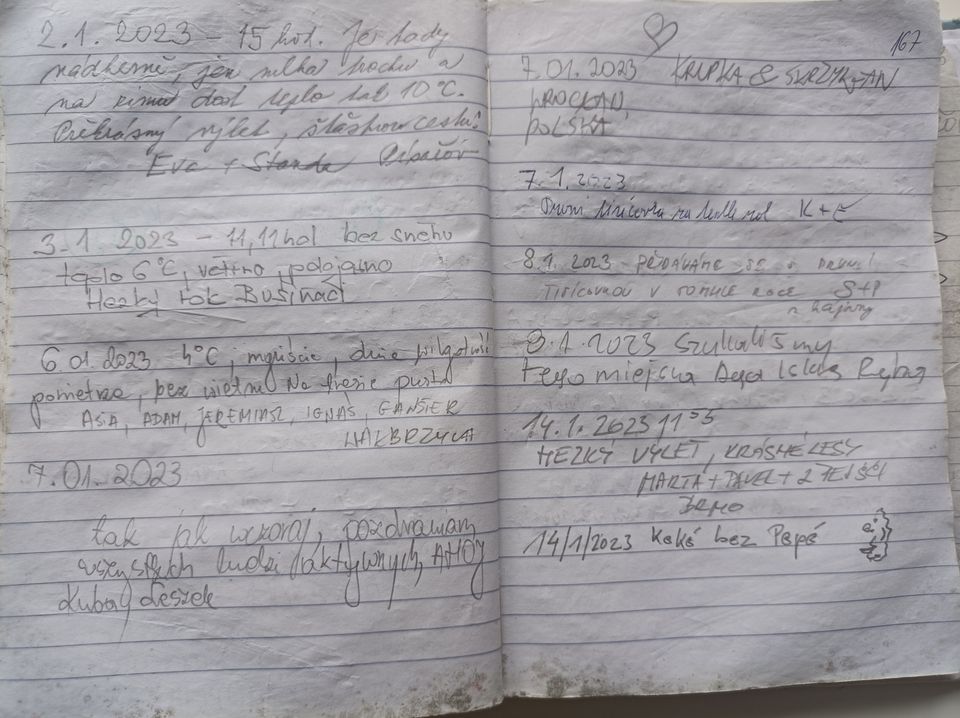 2.1.2023 – 15 hod. Je tady
nádherně, jen mlha trochu a
na zimu dost teplo tak 10°C.
Překrásný výlet,
Eva + Standa
3.1 2023 – 11,11 hod bez sněhu
teplo 6°C, větrno, polojasno
Hezký rok Bušinači
6.01.2023 4°C, mgliście, duża wilgotność
powietrza, bez wiatru. Na trasie pusto
ASIA, ADAM, JEREMIASZ, IGNAŚ, GANSIER
WAŁBRZYCH
7.01.2023
tak jak wczoraj, pozdrawiam
wszystkich ludzi aktywnych, AHOJ
Kuba, Leszek
167
7.01.2023 KRUPKA & SKRZYK
WROCŁAW
POLSKA
7.1.2023
První K+E
8.1.2023 – PŘIDÁVÁME SE S PRVNÍ
V TOMHLE ROCE S+P
z hájovny
8.1.2023 Szukaliśmy
tego miejsca Aga
14.1.2023 11⁰⁵
HEZKÝ VÝLET, KRÁSNÉ LESY
MARTA + PAVEL + 2 PEJSCI
BRNO
14/1/2023 Keké bez Pepé